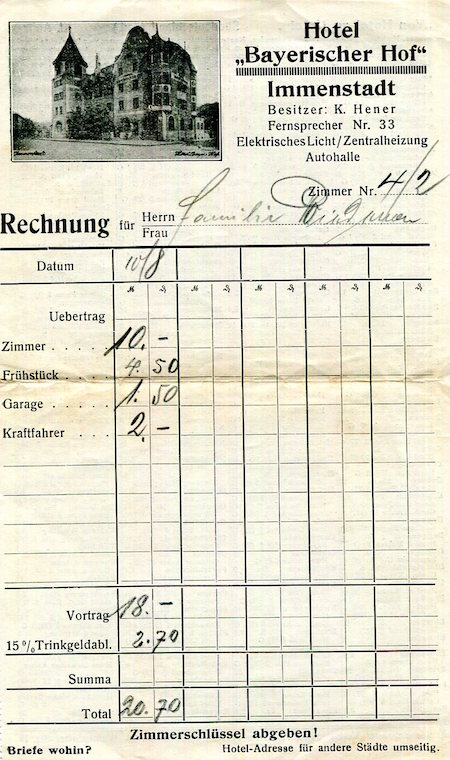 Hotel
„Bayerischer Hof“
Immenstadt
Besitzer: K. Hener
Fernsprecher Nr. 33
Elektrisches Licht/Zentralheizung
Autohalle
Zimmer Nr. 4/2
Rechnung für Herrn Frau Familie
Datum 10/8
M ₰ M ₰ M ₰ M ₰ M ₰
Uebertrag
Zimmer . . . . . 10. –
Frühstück . . . . 4. 50
Garage . . . . . 1. 50
Kraftfahrer . . . . 2. –
Vortrag 18. –
15 % Trinkgeldabl. 2.70
Summa
Total 20. 70
Zimmerschlüssel abgeben!
Briefe wohin? Hotel-Adresse für andere Städte umseitig.